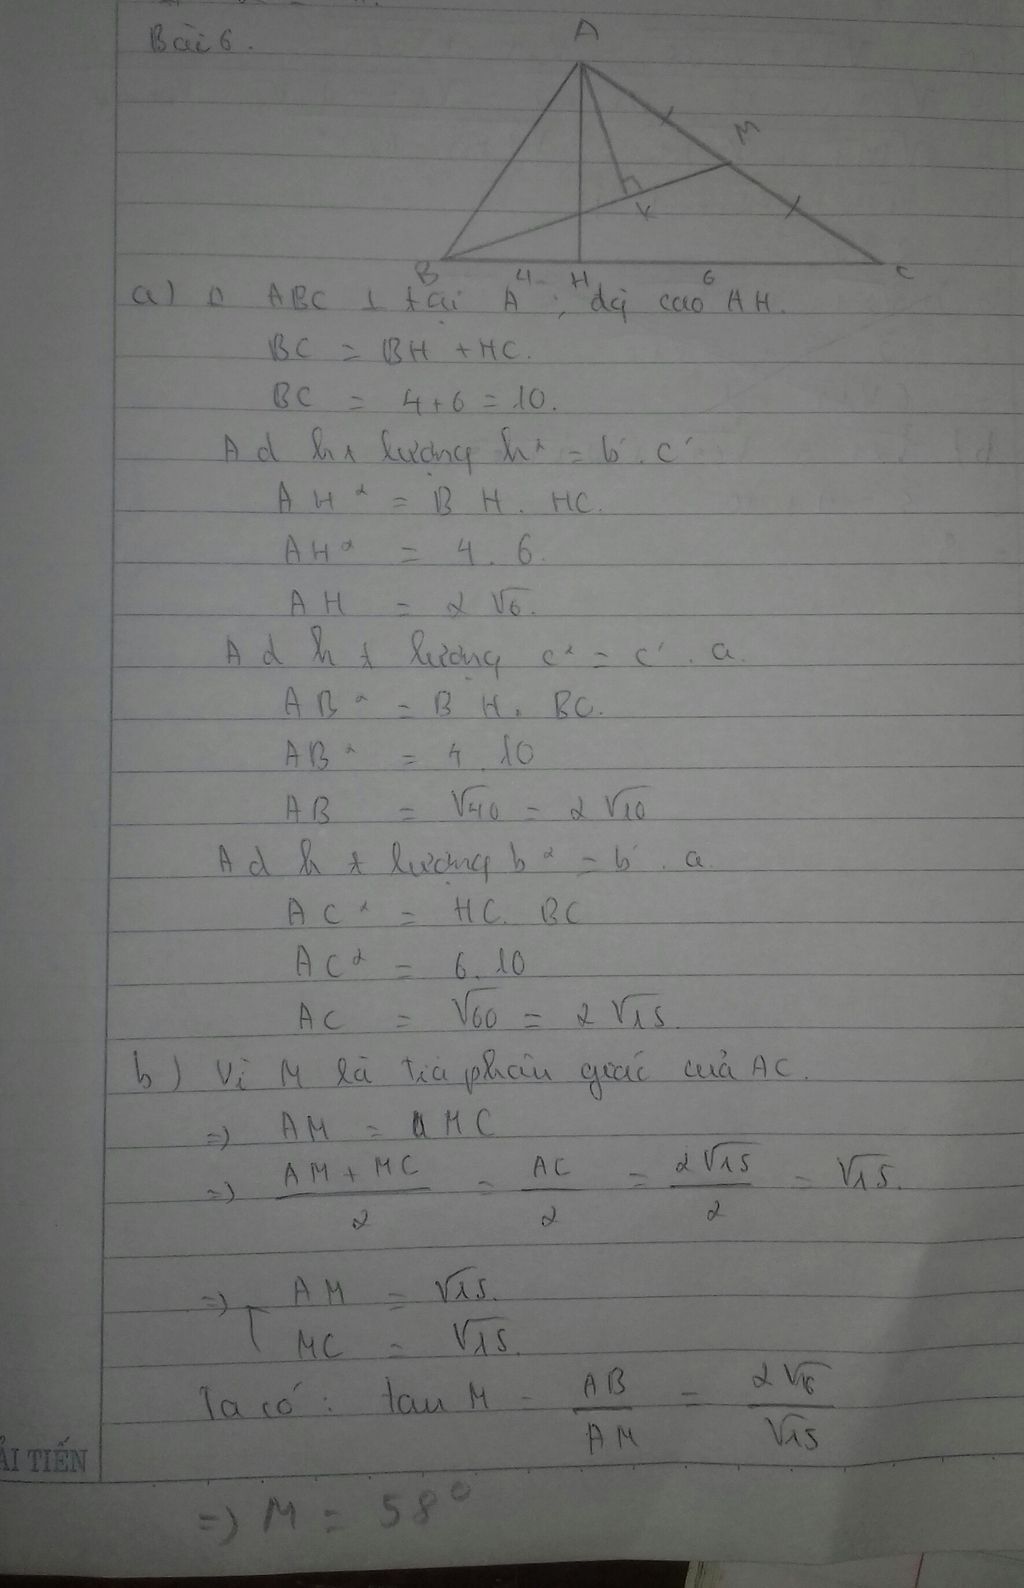 Bài 6.
A
M
K
B 4 H 6 C
a) Δ ABC ⊥ tại A ; đg cao AH.
BC = BH + HC.
BC = 4+6 = 10.
Ad ht lượng h² = b'. c'
AH² = BH. HC.
AH² = 4. 6.
AH = 2√6.
Ad ht lượng c² = c'. a.
AB² = BH. BC.
AB² = 4. 10
AB = √40 = 2√10
Ad ht lượng b² = b'. a.
AC² = HC. BC
AC² = 6. 10
AC = √60 = 2√15.
b) Vì M là tia phân giác của AC.
=> AM = MC
=> (AM + MC)/2 = AC/2 = 2√15/2 = √15.
=> [ AM = √15.
MC = √15.
Ta có: tan M = AB/AM = /√15
ẢI TIẾN
=> M = 58°